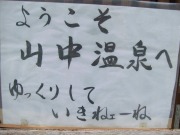 ようこそ
山中温泉へ
ゆっくりして
いきねェーね